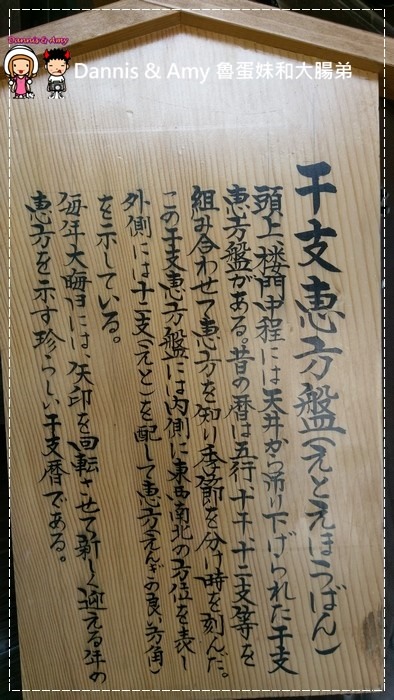 Dannis & Amy
Dannis & Amy 魯蛋妹和大腸弟
干支恵方盤(えとえほうばん)
頭上、楼門中程には天井から吊り下げられた干支
恵方盤がある。昔の暦は五行、十干、十二支等を
組み合わせて恵方を知り季節を分け時を刻んだ。
この干支恵方盤には内側に東西南北の方位を表し
外側には十二支(えと)を配して恵方(えんぎの良い方角)
を示している。
毎年大晦日には、矢印を回転させて新しく迎える年の
恵方を示す珍らしい干支暦である。